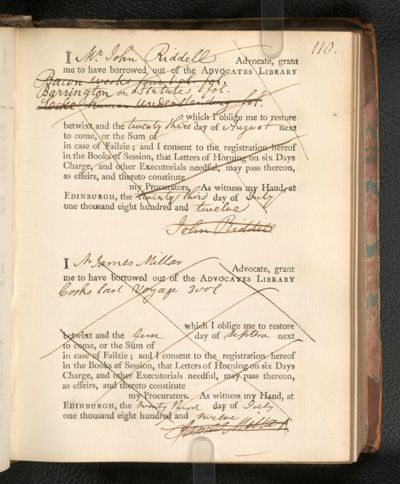 110.
I Mr. John Riddell Advocate, grant
me to have borrowed out of the ADVOCATES LIBRARY
Bacon works four vol fol.
Barrington on Statutes fol.
Locke human understanding fol.
which I oblige me to restore
betwixt and the twenty third day of August next
to come, or the Sum of
in case of Failzie; and I consent to the registration hereof
in the Books of Session, that Letters of Horning on six Days
Charge, and other Executorials needful, may pass thereon,
as effeirs, and thereto constitute
my Procurators. As witness my Hand, at
EDINBURGH, the twenty third day of July
one thousand eight hundred and twelve
John Riddell
I Mr James Millar
Advocate, grant
me to have borrowed out of the ADVOCATES LIBRARY
Cooks last Voyage 3 vol
which I oblige me to restore
betwixt and the day of Septem next
to come, or the Sum of
in case of Failzie; and I consent to the registration hereof
in the Books of Session, that Letters of Horning on six Days
Charge, and other Executorials needful, may pass thereon,
as effeirs, and thereto constitute
my Procurators. As witness my Hand, at
EDINBURGH, the twenty third day of July
one thousand eight hundred and twelve
James Millar